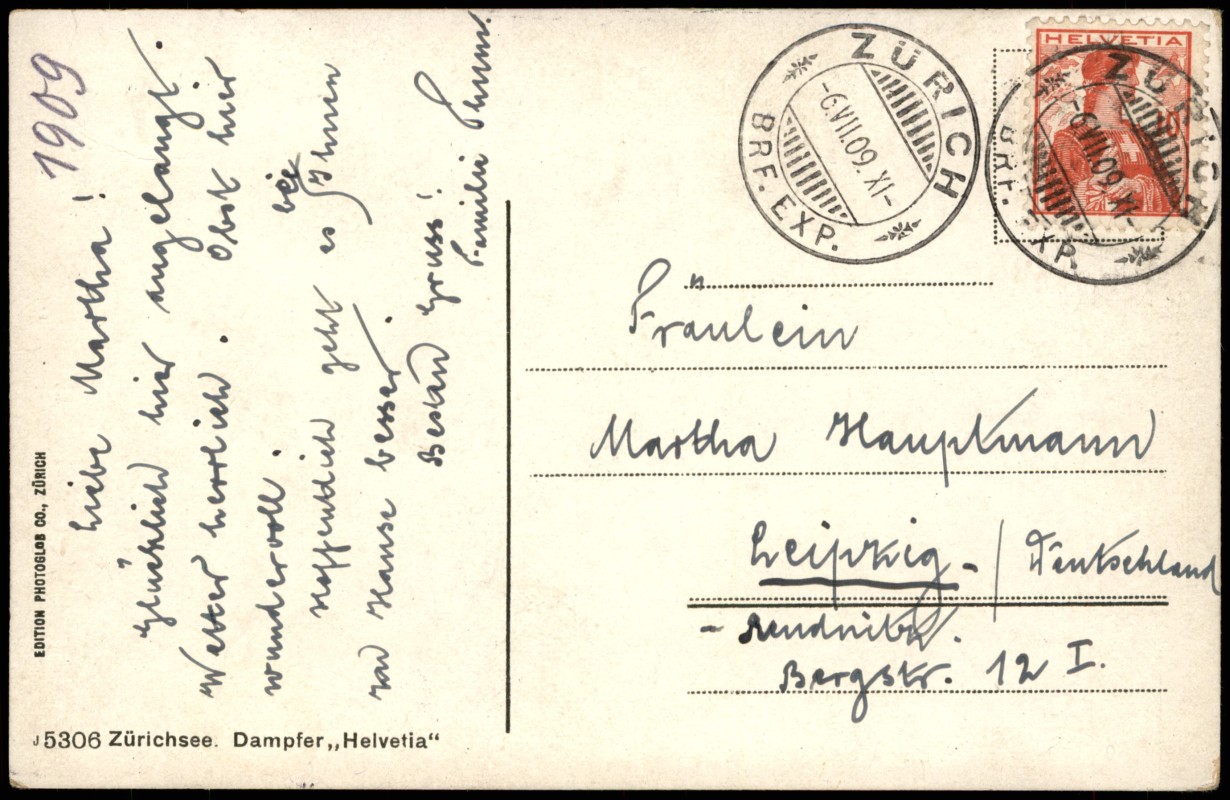 1909
Liebe Martha!
Glücklich hier angelangt.
Wetter herrlich. Obst hier
wundervoll.
Hoffentlich geht es Ihnen
bei
zu Hause besser.
Besten Gruss!
Familie
EDITION PHOTOGLOB CO., ZÜRICH
J 5306 Zürichsee. Dampfer „Helvetia“
ZÜRICH
-6.VII.09.XI-
BRF. EXP.
HELVETIA
ZÜRICH
-6.VII.09.XI-
BRF. EXP.
Fräulein
Martha Hauptmann
Leipzig- / Deutschland
- Reudnitz.
Bergstr. 12 I.